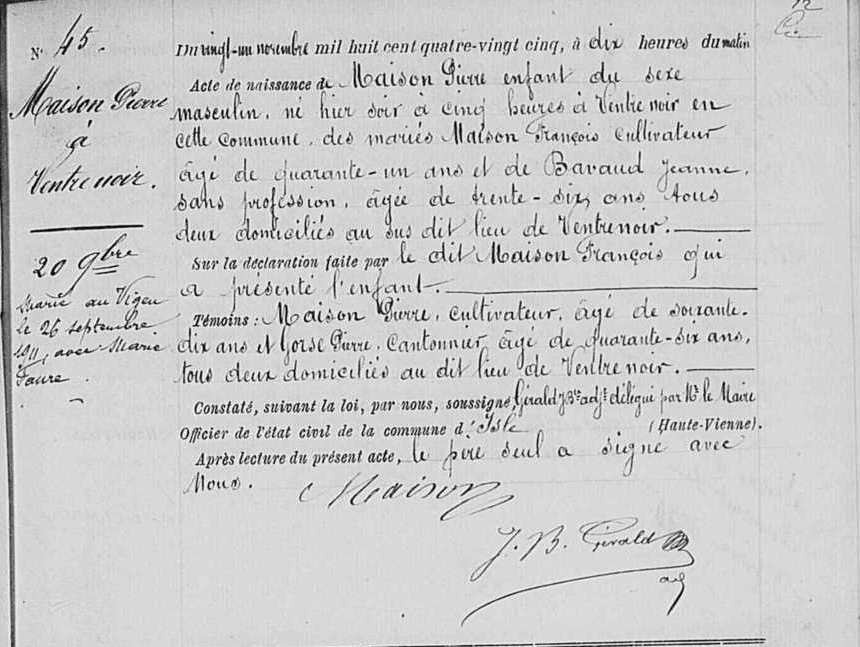 N° 45.
Maison Pierre
à
Ventrenoir.
20 9bre
Marié au Vigen
le 26 septembre
1911, avec Marie
Faure.
Du vingt-un novembre mil huit cent quatre-vingt cinq, à dix heures du matin
Acte de naissance de Maison Pierre enfant du sexe
masculin, né hier soir à cinq heures à Ventrenoir en
cette commune, des mariés Maison François cultivateur
âgé de quarante-un ans et de Bavaud Jeanne,
sans profession, âgée de trente-six ans tous
deux domiciliés au sus dit lieu de Ventrenoir.
Sur la déclaration faite par le dit Maison François qui
a présenté l'enfant.
Témoins : Maison Pierre, cultivateur, âgé de soixante-
dix ans et Gorse Pierre, Cantonnier, âgé de quarante-six ans,
tous deux domiciliés au dit lieu de Ventrenoir.
Constaté, suivant la loi, par nous, soussigné, Gérald J Bte adjt délégué par Mr le Maire
Officier de l'état civil de la commune d'Isle (Haute-Vienne).
Après lecture du présent acte, le père seul a signé avec
Nous.
Maison
J. B. Gérald
adj